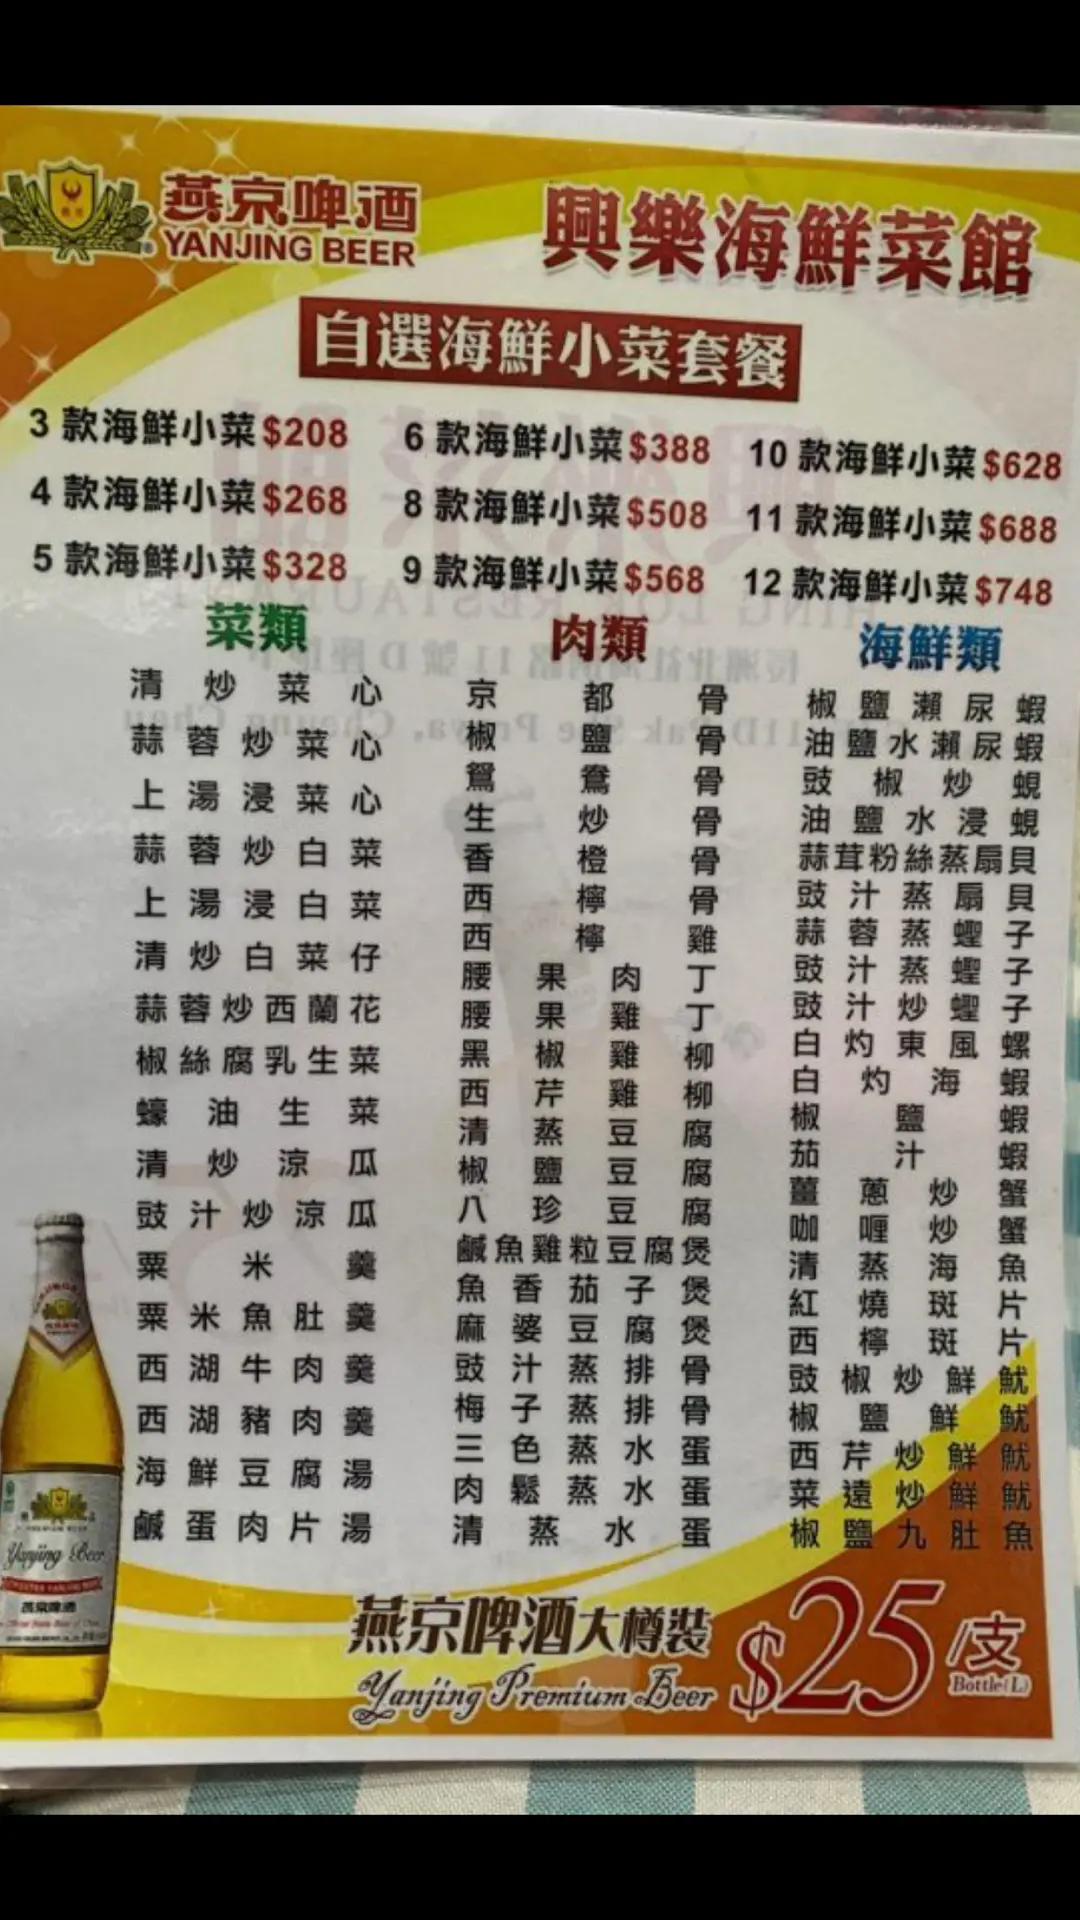 燕京啤酒
YANJING BEER
興樂海鮮菜館
自選海鮮小菜套餐
3 款海鮮小菜 $208
4 款海鮮小菜 $268
5 款海鮮小菜 $328
6 款海鮮小菜 $388
8 款海鮮小菜 $508
9 款海鮮小菜 $568
10 款海鮮小菜 $628
11 款海鮮小菜 $688
12 款海鮮小菜 $748
菜類
清炒菜心
蒜蓉炒菜心
上湯浸菜心
蒜蓉炒白菜
上湯浸白菜
清炒白菜仔
蒜蓉炒西蘭花
椒絲腐乳生菜
蠔油生菜
清炒涼瓜
豉汁炒涼瓜
粟米羹
粟米魚肚羹
西湖牛肉羹
西湖豬肉羹
海鮮豆腐湯
鹹蛋肉片湯
肉類
京都骨
椒鹽骨
鴛鴦骨
生炒骨
香橙骨
西檸骨
西檸雞
腰果肉丁
腰果雞丁
黑椒雞柳
西芹雞柳
清蒸豆腐
椒鹽豆腐
八珍豆腐
鹹魚雞粒豆腐煲
魚香茄子煲
麻婆豆腐煲
豉汁蒸排骨
梅子蒸排骨
三色蒸水蛋
肉鬆蒸水蛋
清蒸水蛋
海鮮類
椒鹽瀨尿蝦
油鹽水瀨尿蝦
豉椒炒蜆
油鹽水浸蜆
蒜茸粉絲蒸扇貝
豉汁蒸扇貝
蒜蓉蒸蟶子
豉汁蒸蟶子
豉汁炒蟶子
白灼東風螺
白灼海蝦
椒鹽蝦
茄汁蝦
薑蔥炒蟹
咖喱炒蟹
清蒸海魚
紅燒斑片
西檸斑片
豉椒炒鮮魷
椒鹽鮮魷
西芹炒鮮魷
菜遠炒鮮魷
椒鹽九肚魚
Yanjing Beer
燕京啤酒
燕京啤酒大樽裝
Yanjing Premium Beer
$25/支
Bottle(L)